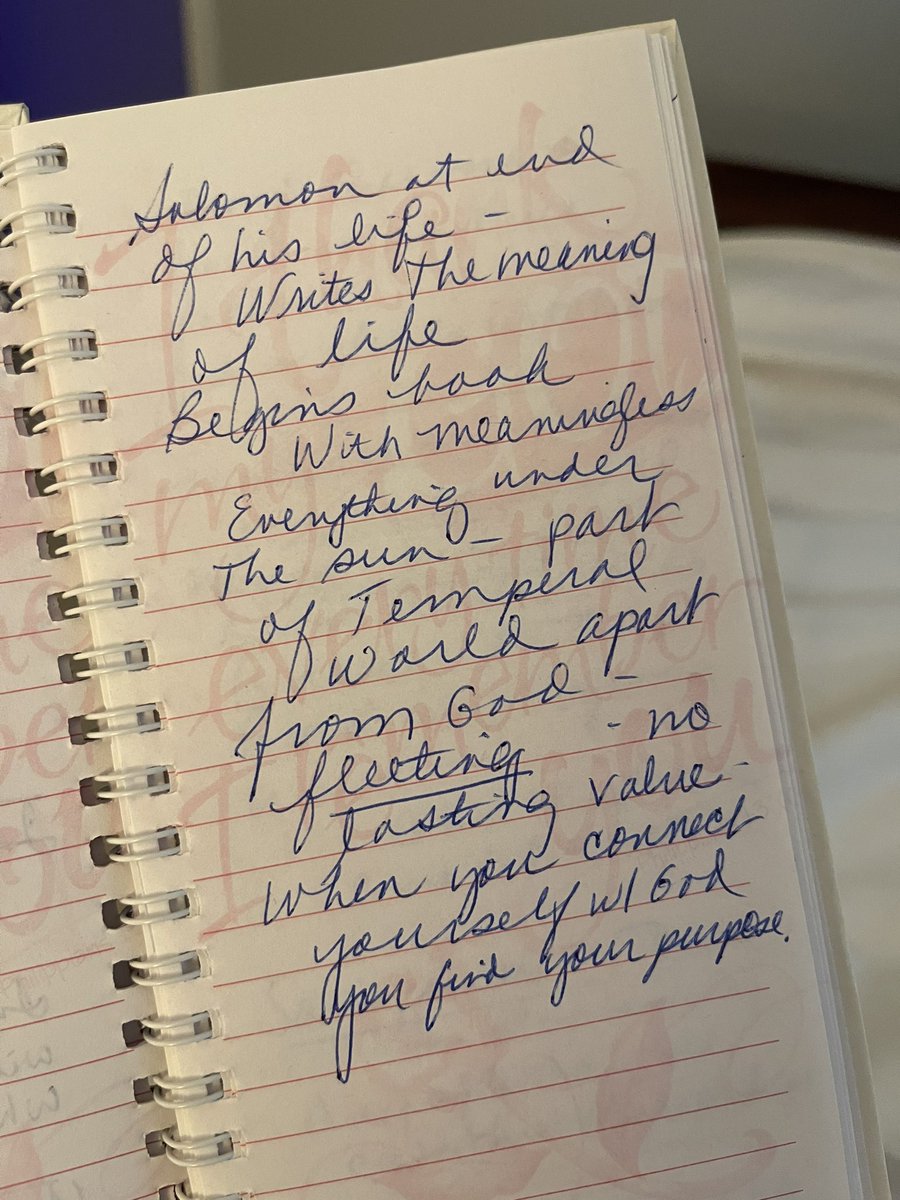 Solomon at end
of his life -
Writes the meaning
of life
Begins book
With meaningless
Everything under
The sun - part
of Temperal
World apart
from God -
fleeting - no
lasting value -
When you connect
yourself w/ God
you find your purpose.